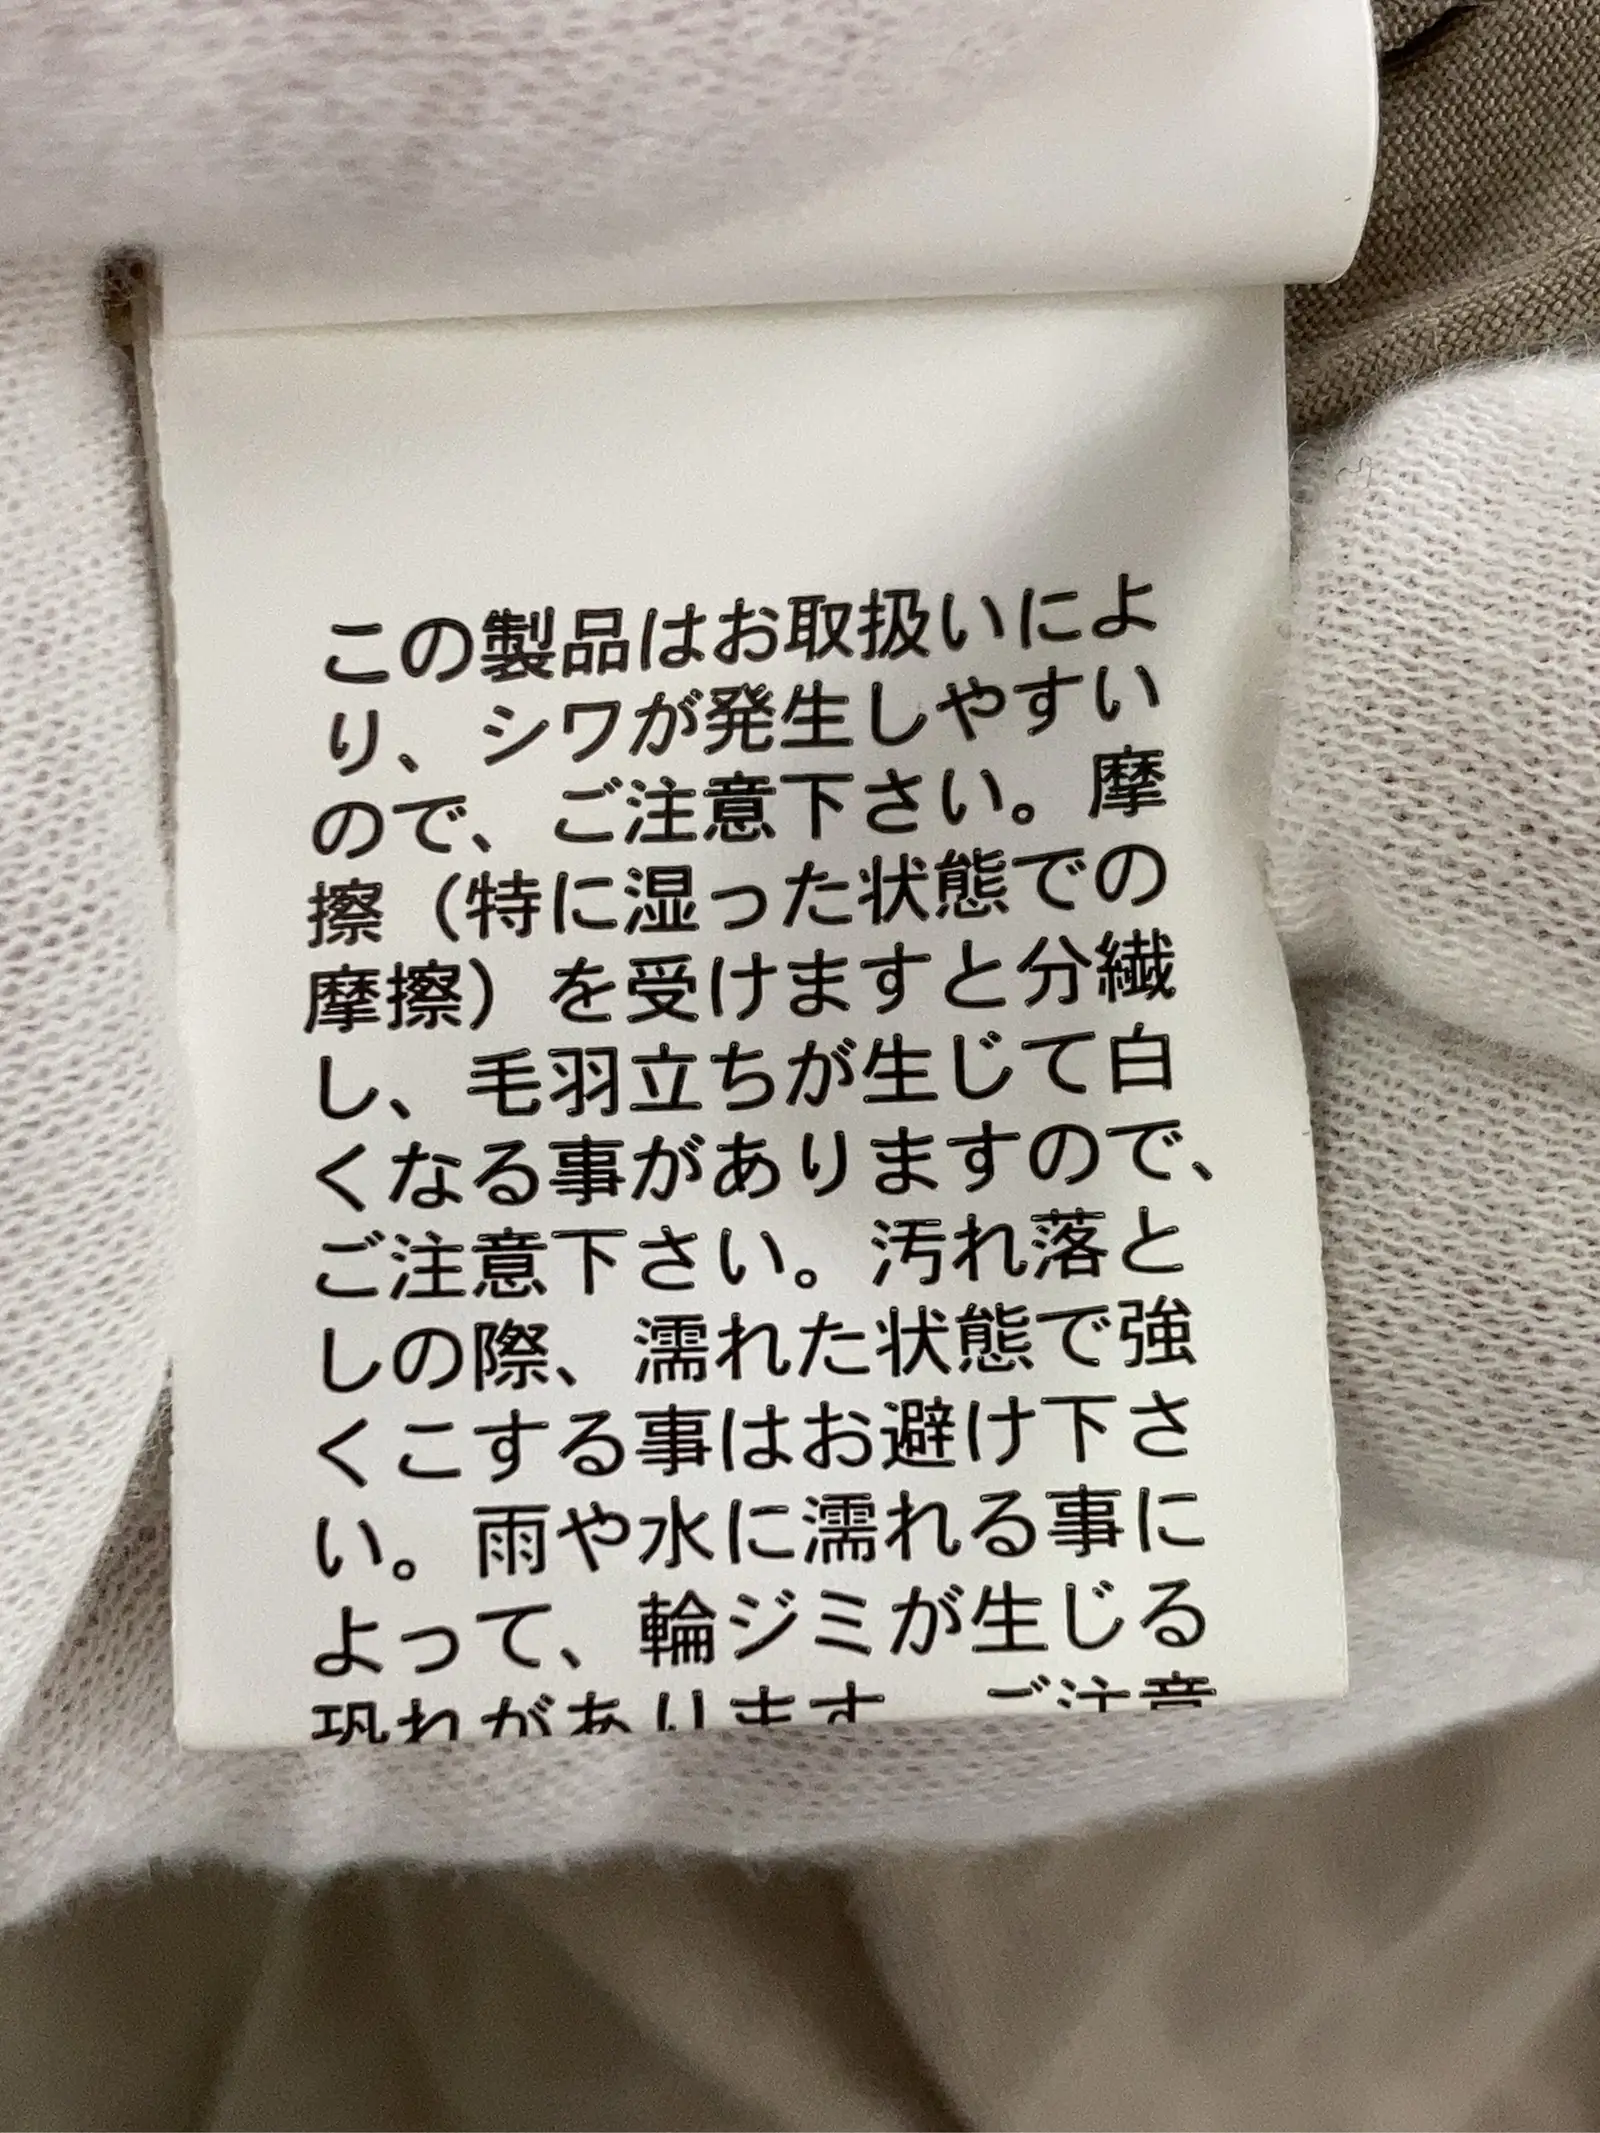 この製品はお取扱いによ
り、シワが発生しやすい
ので、ご注意下さい。摩
擦（特に湿った状態での
摩擦）を受けますと分繊
し、毛羽立ちが生じて白
くなる事がありますので、
ご注意下さい。汚れ落と
しの際、濡れた状態で強
くこする事はお避け下さ
い。雨や水に濡れる事に
よって、輪ジミが生じる
恐れがあります。ご注意